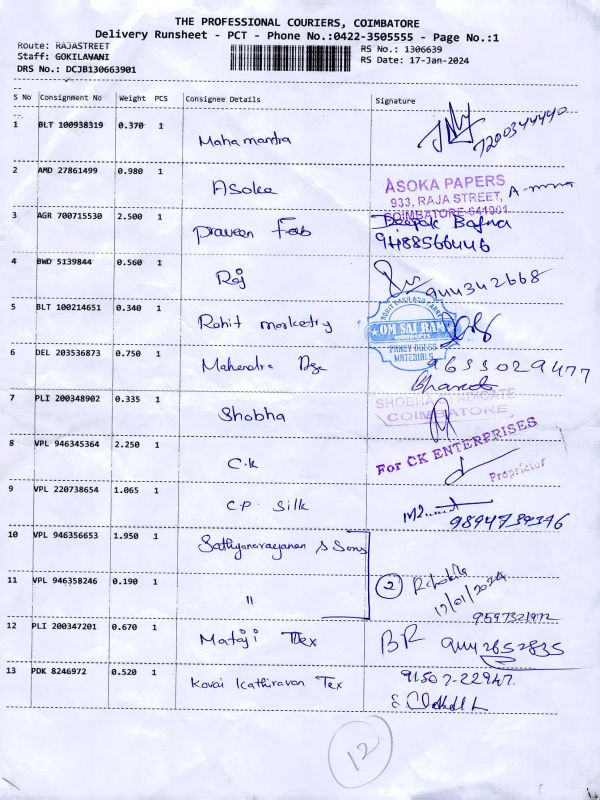 THE PROFESSIONAL COURIERS, COIMBATORE
Delivery Runsheet - PCT - Phone No.:0422-3505555 - Page No.:1
Route: RAJASTREET
Staff: GOKILAVANI
DRS No.: DCJB130663901
RS No.: 1306639
RS Date: 17-Jan-2024
S No Consignment No Weight PCS Consignee Details Signature
1 BLT 100938319 0.370 1 Mahamantra 7200344440
2 AMD 27861499 0.980 1 Asoka
ASOKA PAPERS
933, RAJA STREET,
COIMBATORE-641001
3 AGR 700715530 2.500 1 Praveen Fab Deepak Bafna
9488566446
4 BWD 5139844 0.560 1 Raj 944342668
5 BLT 100214651 0.340 1 Rohit marketry
OM SAI RAM
PRODUCTS
FANCY DRESS
MATERIALS
6 DEL 203536873 0.750 1 Mahendra 9633029477
Bharat
7 PLI 200348902 0.335 1 Shobha
SHOBHA SYNDICATE
COIMBATORE
8 VPL 946345364 2.250 1 C.K
For CK ENTERPRISES
Proprietor
9 VPL 220738654 1.065 1 C.P. Silk 9894739346
10 VPL 946356653 1.950 1 Sathyanarayanan & Sons
11 VPL 946358246 0.190 1 " 2
17/01/2024
9597321972
12 PLI 200347201 0.670 1 Mataji Tex BR 9442652835
13 PDK 8246972 0.520 1 Kovai Kathiravan Tex 91507-22947.
12